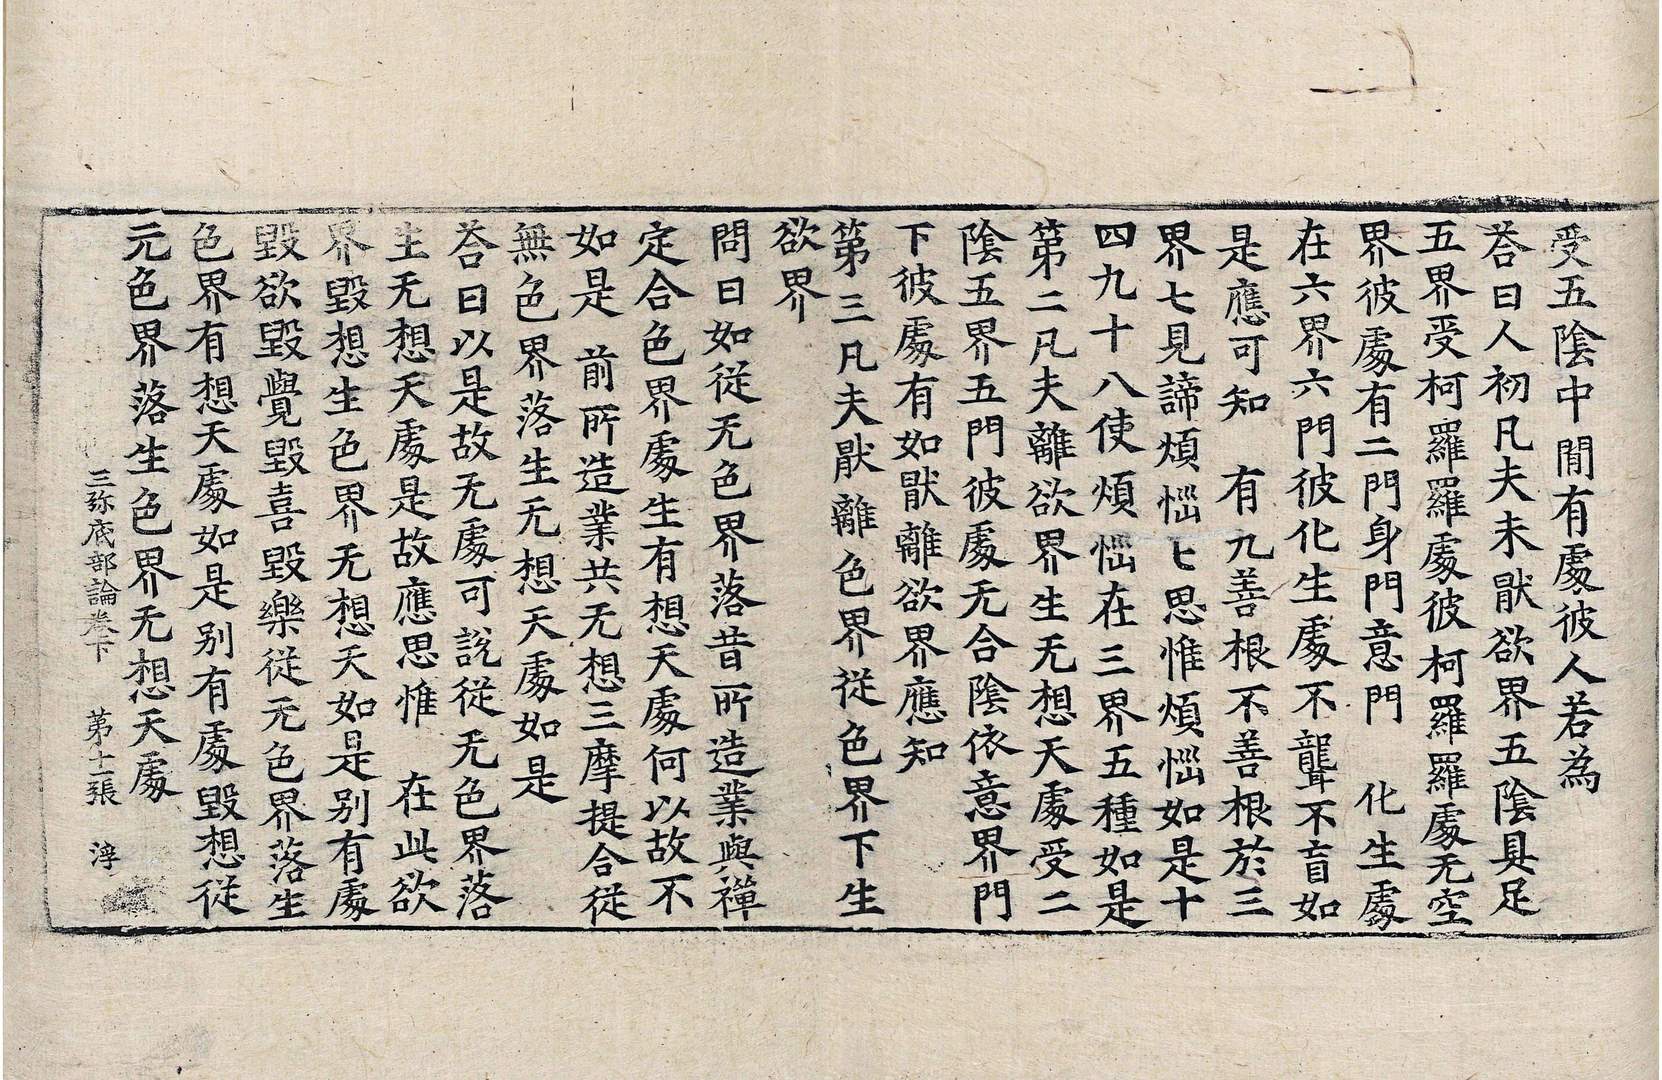 受五陰中閒有處彼人若為
荅曰人初凡夫未猒欲界五陰具足
五界受柯羅羅處彼柯羅羅處无空
界彼處有二門身門意門　化生處
在六界六門彼化生處不聾不盲如
是應可知　有九善根不善根於三
界七見諦煩惱七思惟煩惱如是十
四九十八使煩惱在三界五種如是
第二凡夫離欲界生无想天處受二
陰五界五門彼處无合陰依意界門
下彼處有如猒離欲界應知
第三凡夫猒離色界從色界下生
欲界
問曰如從无色界落昔所造業與禪
定合色界處生有想天處何以故不
如是　前所造業共无想三摩提合從
無色界落生无想天處如是
荅曰以是故无處可說從无色界落
生无想天處是故應思惟　在此欲
界毀想生色界无想天如是别有處
毀欲毀覺毀喜毀樂從无色界落生
色界有想天處如是别有處毀想從
无色界落生色界无想天處
三弥底部論卷下　第十一張　淳